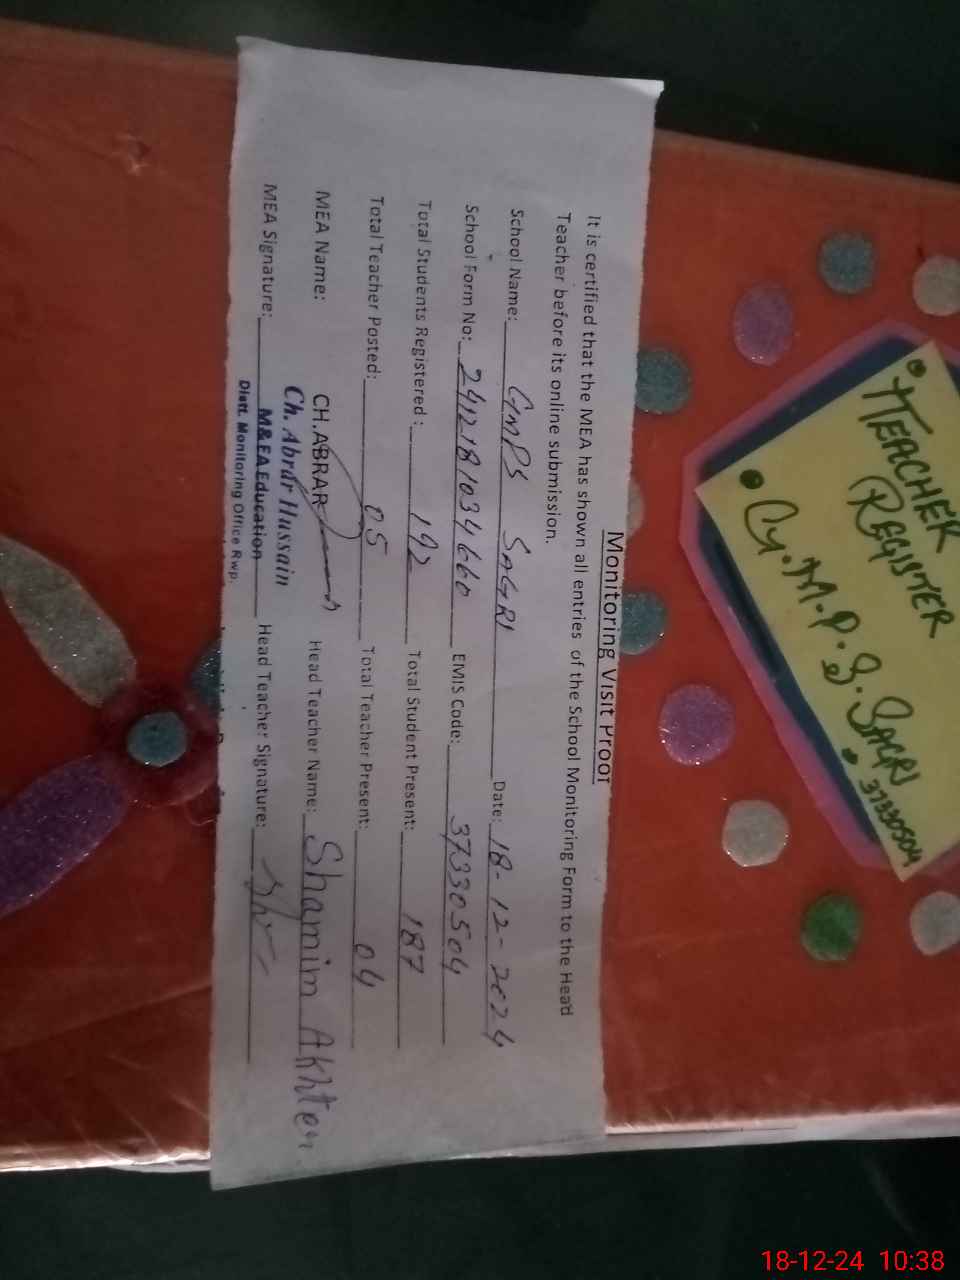 Monitoring Visit Proof
It is certified that the MEA has shown all entries of the School Monitoring Form to the Head
Teacher before its online submission.
School Name: GMPS SAGRI Date: 18-12-2024
School Form No: 2412181034660 EMIS Code: 37330504
Total Students Registered: 192 Total Student Present: 187
Total Teacher Posted: 05 Total Teacher Present: 04
MEA Name: CH.ABRAR Head Teacher Name: Shamim Akhter
Ch. Abrar Hussain
MEA Signature: M&EA Education Head Teacher Signature:
Distt. Monitoring Office Rwp.
TEACHER
REGISTER
G.M.P.S. SAGRI
37330504
18-12-24 10:38